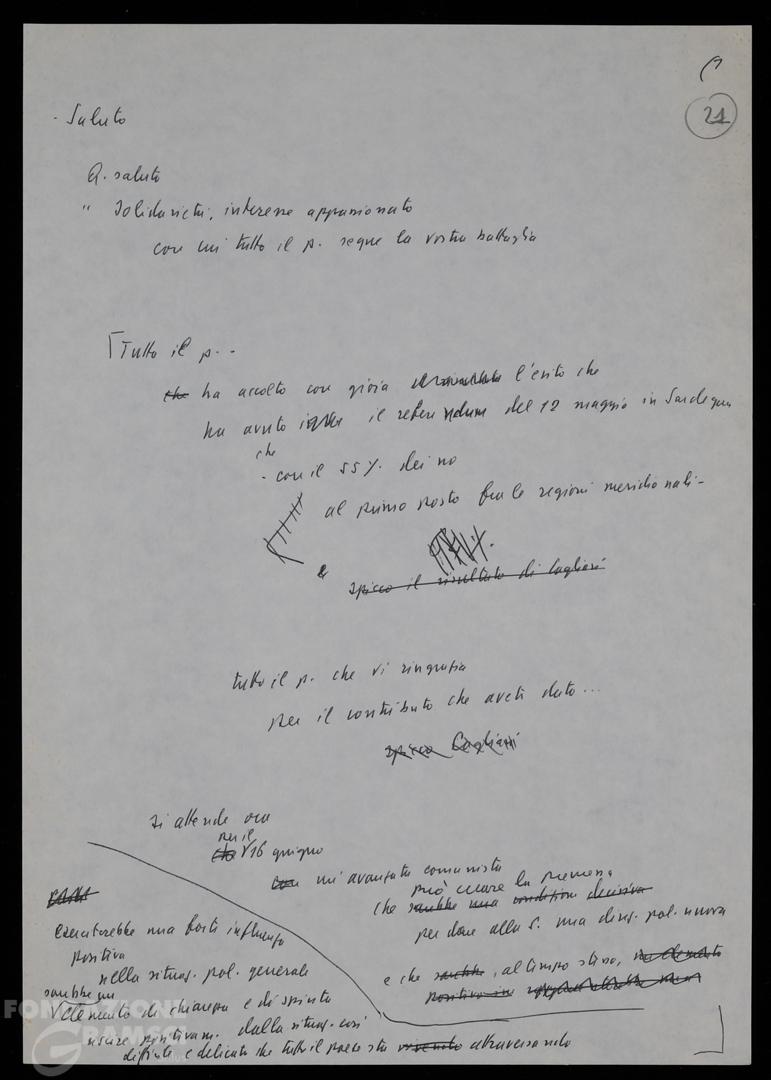 21
- Saluto
Q. saluto
" Solidarietà, interesse appassionato
con cui tutto il p. segue la vostra battaglia
Tutto il p. -
che ha accolto con gioia l'esito che
ha avuto il referendum del 12 maggio in Sardegna
che
- con il 55% dei no
al primo posto fra le regioni meridionali -
e spicca il risultato di Cagliari
tutto il p. che vi ringrazia
per il contributo che avete dato...
spicca Cagliari
Si attende ora
per il
che 16 giugno
con un'avanzata comunista
può creare la premessa
che sarebbe una condizione decisiva
per dare alla S. una direz. pol. nuova
e che sarebbe, al tempo stesso, un elemento
positivo
Eserciterebbe una forte influenza
positiva
nella situaz. pol. generale
sarebbe un
elemento di chiarezza e di spinta
uscire positivam. dalla situaz. così
difficile e delicata che tutto il paese sta vivendo attraversando
FONDAZIONE
GRAMSCI